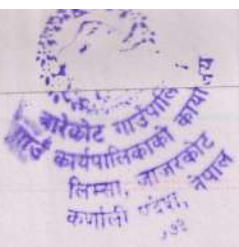 बारेकोट गाउँपालि
गाउँ कार्यपालिकाको कार्यालय
लिम्सा, जाजरकोट
कर्णाली प्रदेश, नेपाल